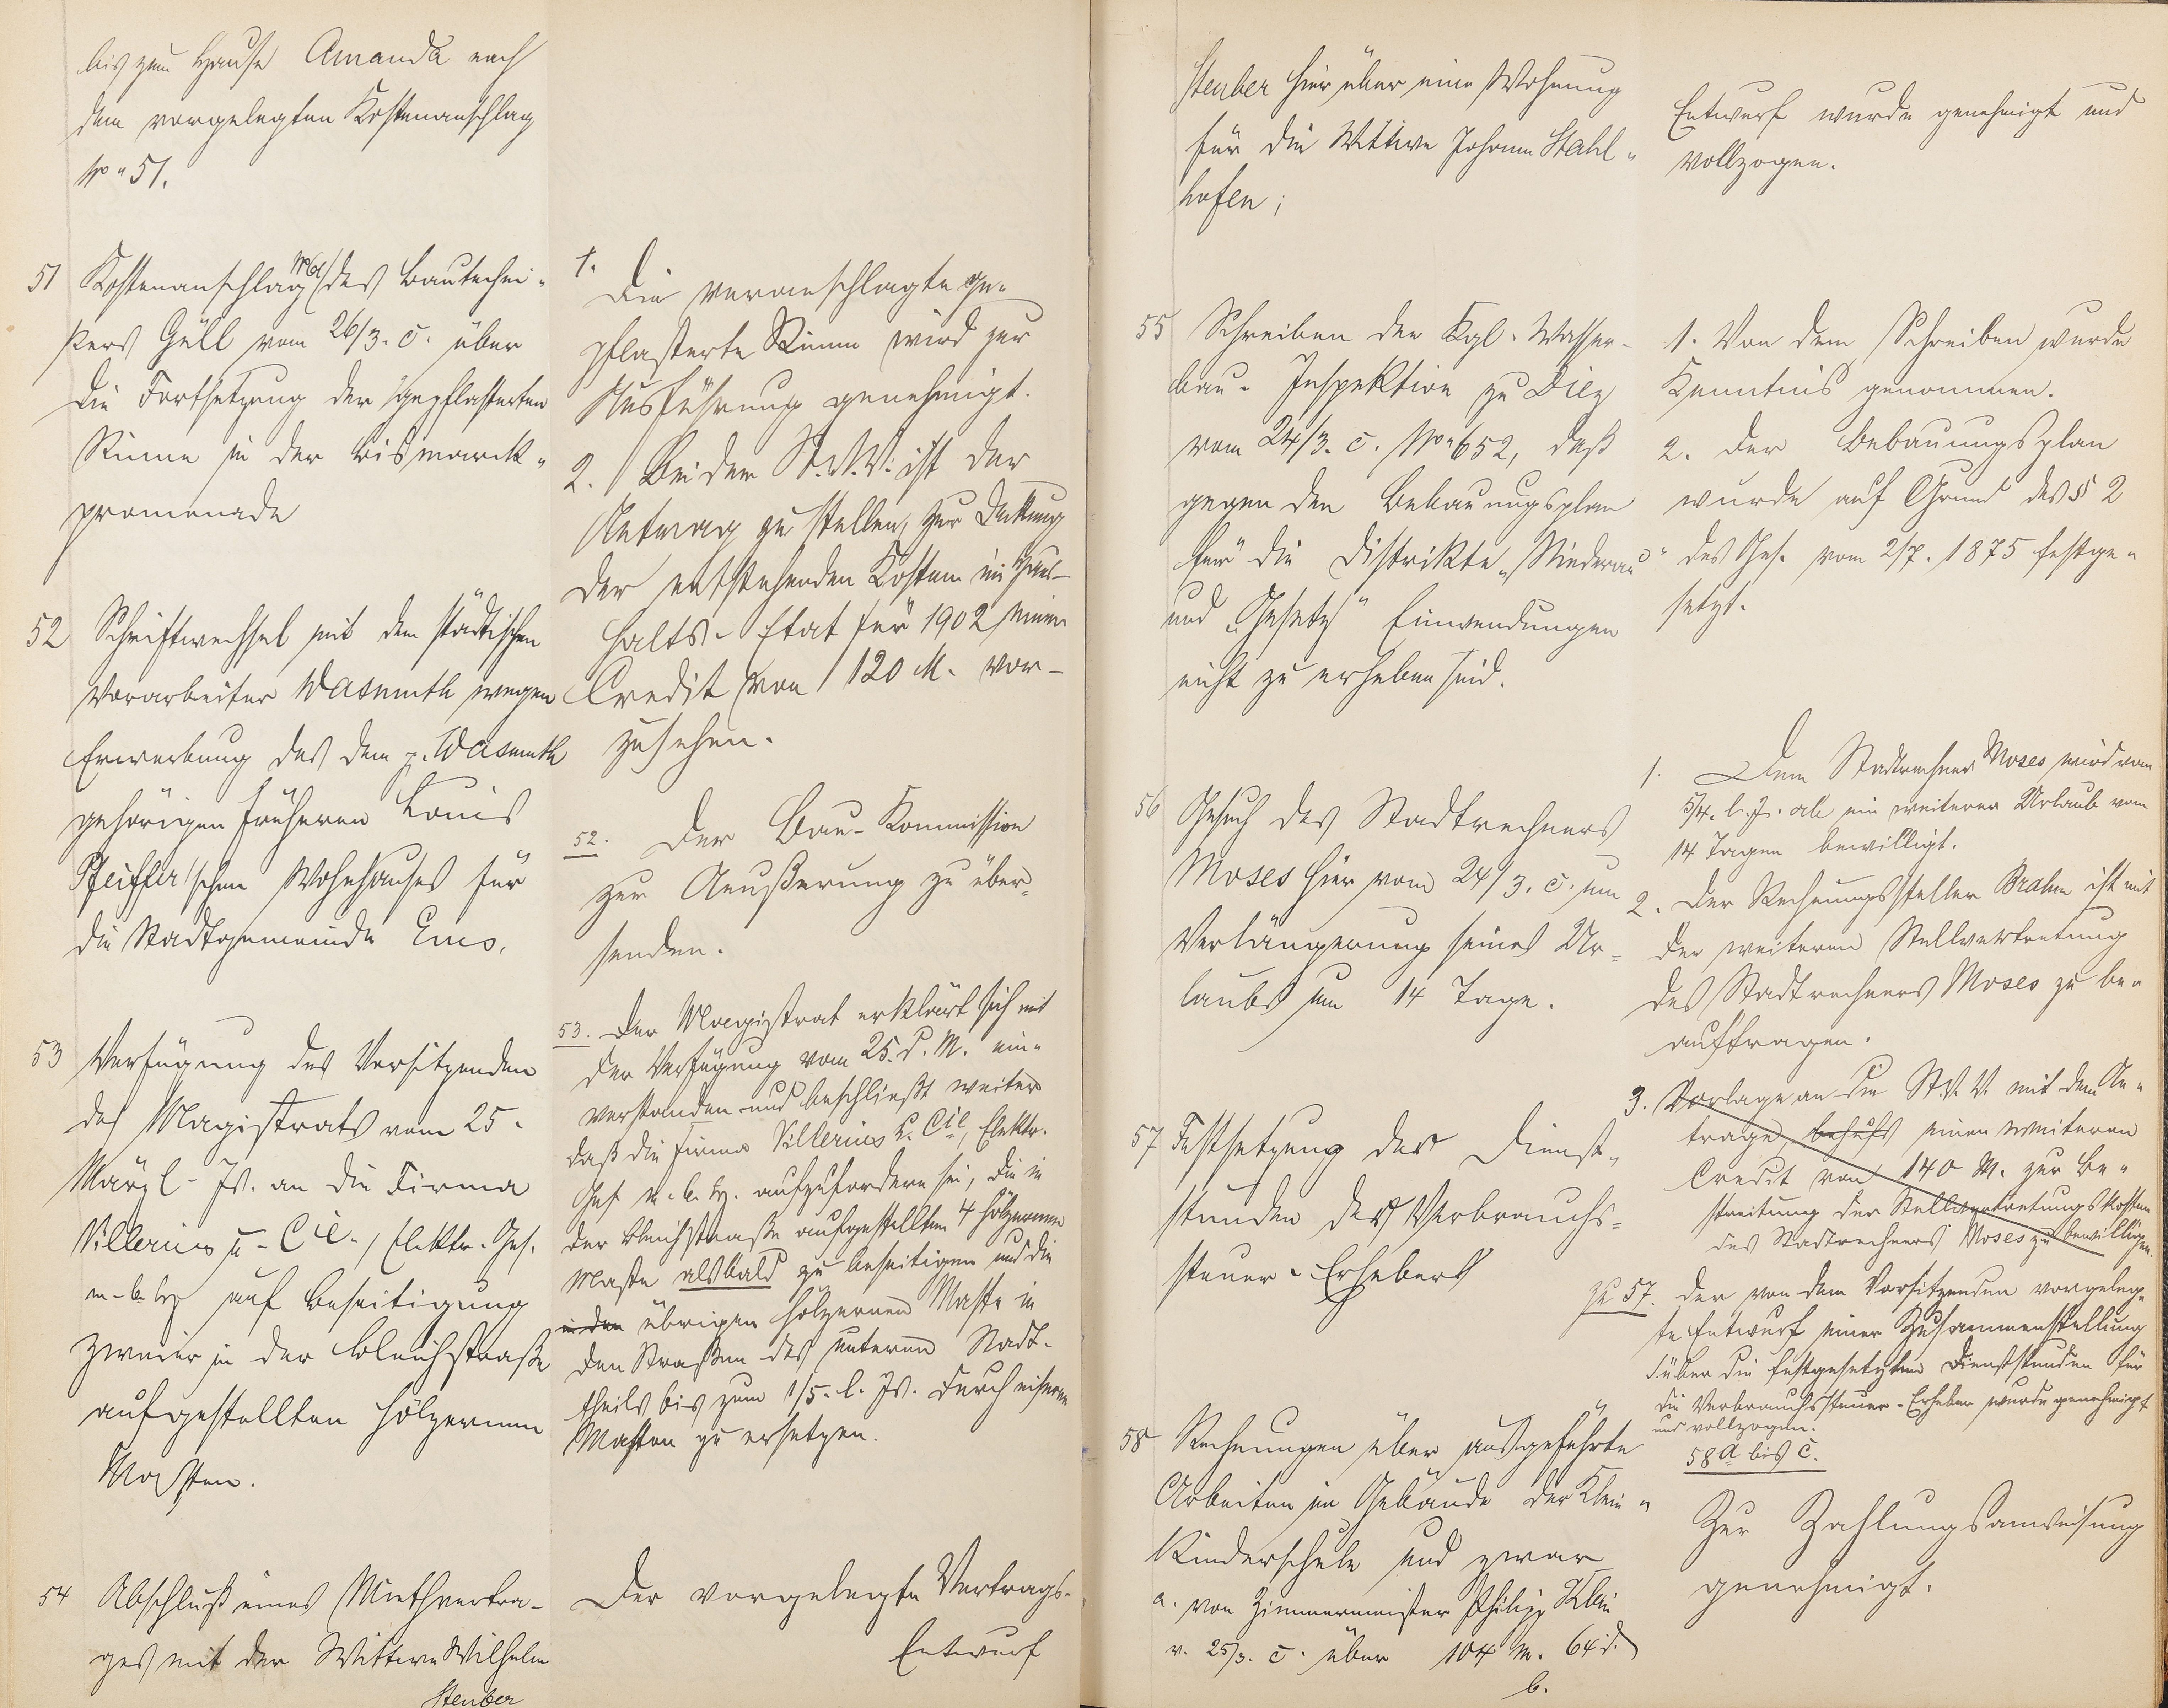 bis zum Hause Amanda nach
dem vorgelegten Kostenanschlag
No 51.
51 Kostenanschlag des Bautechni-
kers Güll vom 26/3. c. über
die Fortsetzung der gepflasterten
Rinne in der Bismarck-
promenade
52 Schriftwechsel mit dem städtischen
Vorarbeiter Wasmuth wegen
Erwerbung des dem p. Wasmuth
gehörigen früheren Louis
Pfeiffer'schen Wohnhauses für
die Stadtgemeinde Ems.
53 Verfügung des Vorsitzenden
des Magistrats vom 25.
März l. Js. an die Firma
Villerius u. Cie., Elektr. Ges.
m. b. H. auf Beseitigung
zweier in der Bleichstraße
aufgestellten hölzernen
Masten.
54 Abschluß eines Miethvertra-
ges mit der Wittwe Wilhelm
Steuber
1.
Die veranschlagte ge-
pflasterte Rinne wird zur
Ausführung genehmigt.
2. Bei der St.V.V. ist der
Antrag zu stellen, zur Deckung
der entstehenden Kosten im Haus-
halts-Etat für 1902 einen
Credit von 120 M. vor-
zusehen.
52. Der Bau-Kommission
zur Aeußerung zu über-
senden.
53. Der Magistrat erklärt sich mit
der Verfügung vom 25. d. M. ein-
verstanden und beschließt weiter
daß die Firma Villerius u. Cie, Elektr.
Ges. m. b. H. aufzufordern sei, die in
der Bleichstraße aufgestellten 4 hölzernen
Maste alsbald zu beseitigen und die
in den übrigen hölzernen Maste in
den Straßen des unteren Stadt-
theils bis zum 1/5. l. Js. durch eiserne
Masten zu ersetzen.
Der vorgelegte Vertrags-
Entwurf
Steuber hier über eine Wohnung
für die Wittwe Johann Stahl-
hofen;
55 Schreiben der Kgl. Wasser-
bau-Inspektion zu Diez
vom 24/3. c. No 652, daß
gegen den Bebauungsplan
für die Distrikte „Niederau"
und „Gesetz" Einwendungen
nicht zu erheben sind.
56 Gesuch des Stadtrechners
Moses hier vom 24/3. c. um
Verlängerung seines Ur-
laubs um 14 Tage.
57 Festsetzung der Dienst-
stunden des Verbrauchs-
steuer-Erhebers
58 Rechnungen über ausgeführte
Arbeiten im Gebäude der Klein-
Kinderschule und zwar
a. von Zimmermeister Philipp Klein
v. 25/3. c. über 104 M. 64 d.
b.
Entwurf wurde genehmigt und
vollzogen.
1. Von dem Schreiben wurde
Kenntnis genommen.
2. Der Bebauungsplan
wurde auf Grund des § 2
des Ges. vom 2/7. 1875 festge-
setzt.
1. Dem Stadtrechner Moses wird vom
5/4. l. Js. ab ein weiterer Urlaub von
14 Tagen bewilligt.
2. Der Rechnungssteller Brahm ist mit
der weiteren Stellvertretung
des Stadtrechners Moses zu be-
auftragen.
3. Vorlage an die St.V.V. mit dem An-
trage, behufs einen weiteren
Credit von 140 M. zur Be-
streitung der Stellvertretungskosten
des Stadtrechners Moses zu bewilligen.
zu 57. Der von dem Vorsitzenden vorgeleg-
te Entwurf einer Zusammenstellung
über die festgesetzten Dienststunden für
die Verbrauchssteuer-Erheber wurde genehmigt
und vollzogen.
58 a bis c.
Zur Zahlungsanweisung
genehmigt.